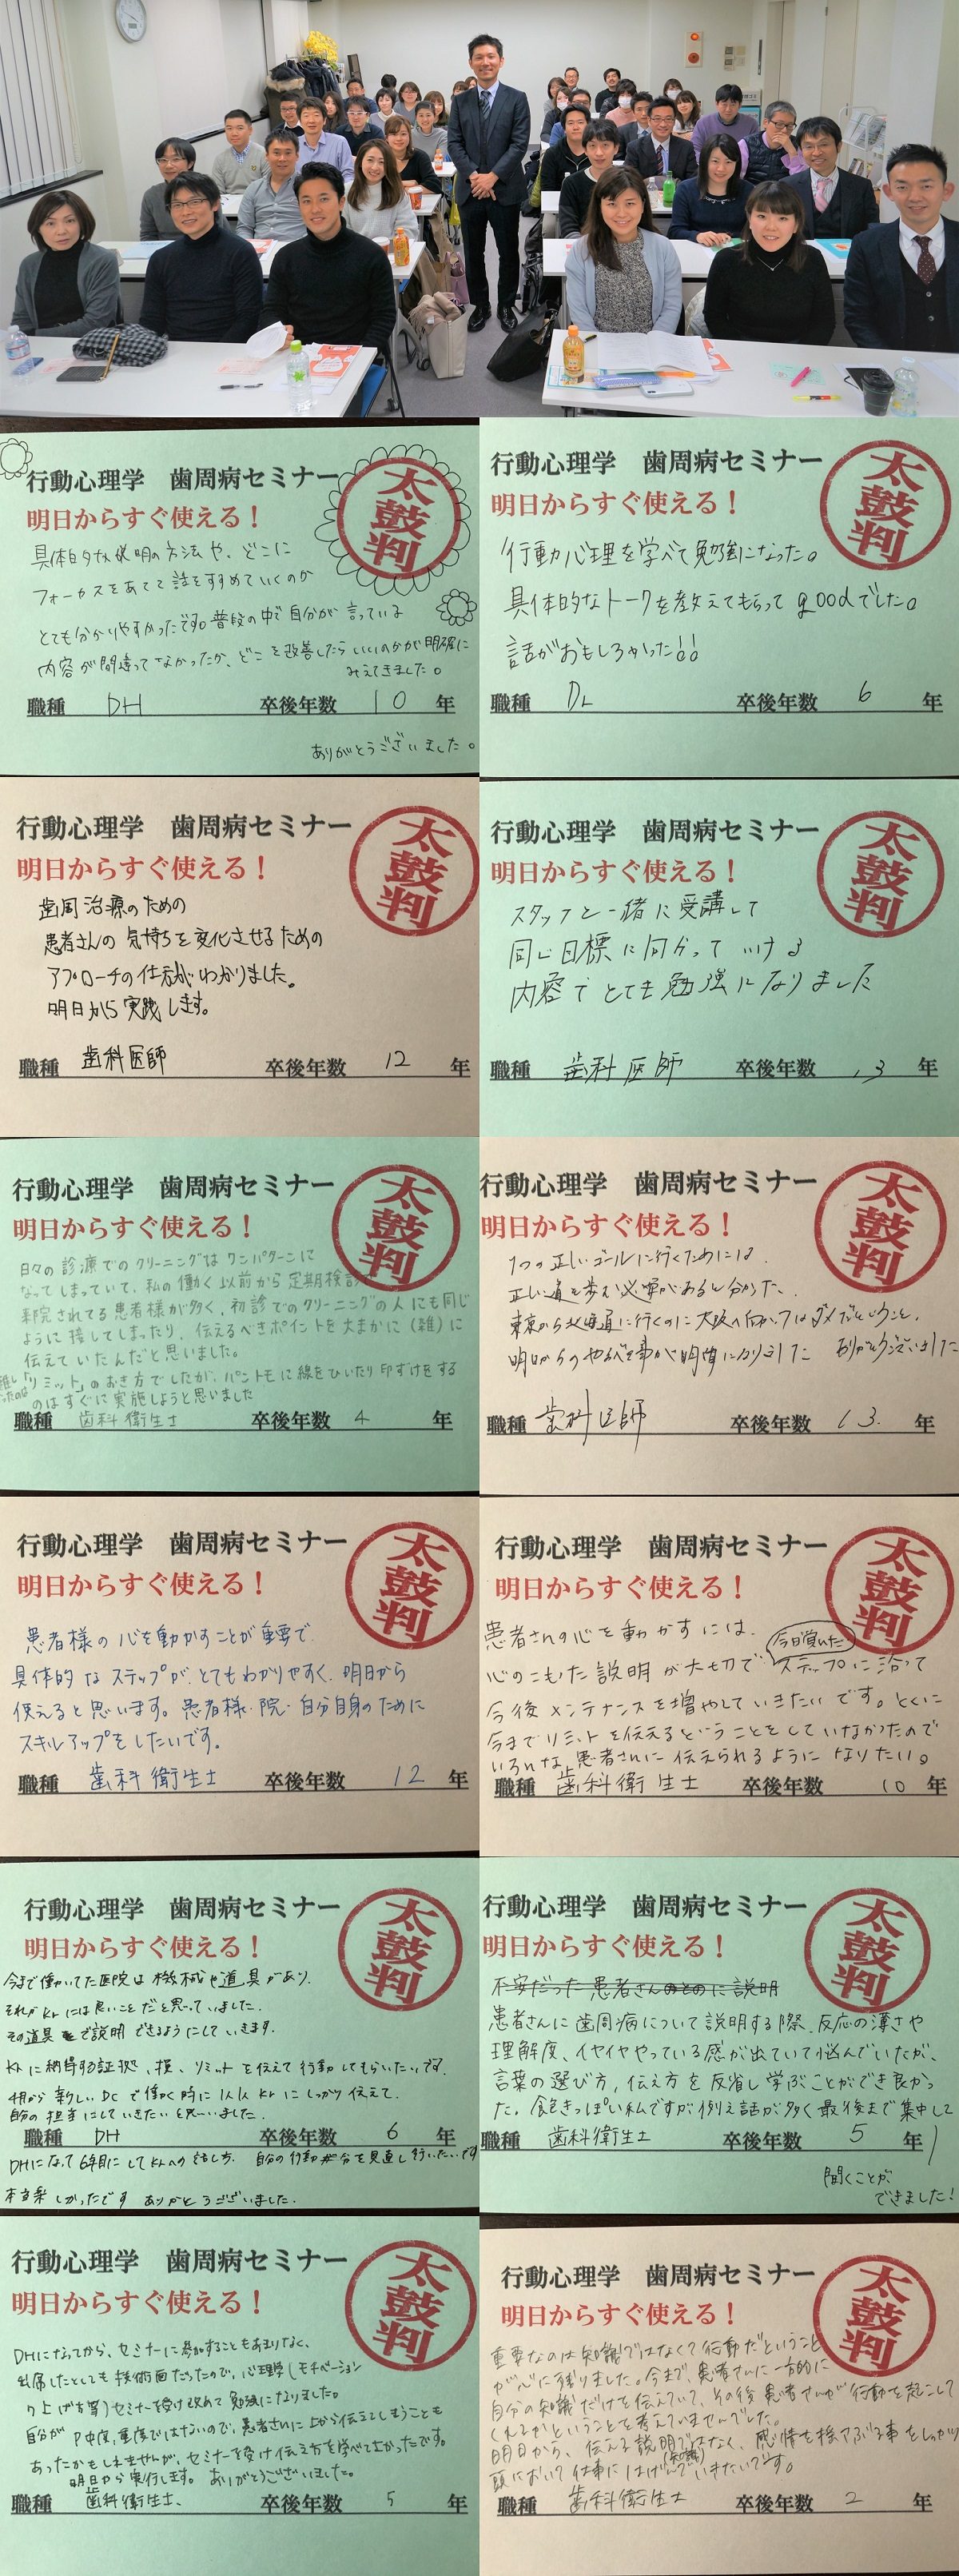 行動心理学 歯周病セミナー
太鼓判
明日からすぐ使える！
具体的な説明の方法や、どこに
フォーカスをあてて話をすすめていくのか
とても分かりやすかったです。普段の中で自分が言っている
内容が間違ってなかったか、どこを改善したらいいのかが明確に
みえてきました。
職種 DH 卒後年数 10 年
ありがとうございました。
行動心理学 歯周病セミナー
太鼓判
明日からすぐ使える！
行動心理を学べて勉強になった。
具体的なトークを教えてもらってgoodでした。
話がおもしろかった!!
職種 Dr 卒後年数 6 年
行動心理学 歯周病セミナー
太鼓判
明日からすぐ使える！
歯周治療のための
患者さんの気持ちを変化させるための
アプローチの仕方がわかりました。
明日から実践します。
職種 歯科医師 卒後年数 12 年
行動心理学 歯周病セミナー
太鼓判
明日からすぐ使える！
スタッフと一緒に受講して
同じ目標に向かっていける
内容でとても勉強になりました
職種 歯科医師 卒後年数 13 年
行動心理学 歯周病セミナー
太鼓判
明日からすぐ使える！
日々の診療でのクリーニングはワンパターンに
なってしまっていて、私の働く以前から定期検診
来院されてる患者様が多く、初診でのクリーニングの人にも同じ
ように接してしまったり、伝えるべきポイントを大まかに(雑)に
伝えていたんだと思いました。
「リミット」のおき方でしたが、パントモに線をひいたり印ずけをする
のはすぐに実施しようと思いました
職種 歯科衛生士 卒後年数 4 年
行動心理学 歯周病セミナー
太鼓判
明日からすぐ使える！
1つの正しいゴールに行くためには、
正しい道を歩む必要があると分かった。
東京から北海道に行くのに大阪へ向かってはダメだということ。
明日からのやるべき事が明確になりました ありがとうございました
職種 歯科医師 卒後年数 13. 年
行動心理学 歯周病セミナー
太鼓判
明日からすぐ使える！
患者様の心を動かすことが重要で
具体的なステップが、とてもわかりやすく、明日から
使えると思います。患者様・院・自分自身のために
スキルアップをしたいです。
職種 歯科衛生士 卒後年数 12 年
行動心理学 歯周病セミナー
太鼓判
明日からすぐ使える！
患者さんの心を動かすには、
今日頂いた
心のこもた説明が大切で、ステップに沿って
今後メンテナンスを増やしていきたいです。とくに
今までリミットを伝えるということをしていなかったので
いろいろな患者さんに伝えられるようになりたい。
職種 歯科衛生士 卒後年数 10 年
行動心理学 歯周病セミナー
太鼓判
明日からすぐ使える！
今まで働いてた医院は機械や道具があり、
それがKrには良いことだと思っていました。
その道具まで説明できるようにしていきます。
Krに納得する証拠、損、リミットを伝えて行動してもらいたいです。
4月から新しいDCで働く時に1人1人Krにしっかり伝えて、
自分の担当にしていきたいと思いました。
職種 DH 卒後年数 6 年
DHになって6年目にしてKrへの 自分の行動 を見直し行いたいです
本当楽しかったです ありがとうございました。
行動心理学 歯周病セミナー
太鼓判
明日からすぐ使える！
不安だった患者さんのとのに説明
患者さんに歯周病について説明する際、反応の薄さや
理解度、イヤイヤやっている感が出ていて悩んでいたが、
言葉の選び方、伝え方を反省し学ぶことができ良かっ
た。飽きっぽい私ですが例え話が多く最後まで集中して
職種 歯科衛生士 卒後年数 5 年
聞くことが
できました！
行動心理学 歯周病セミナー
太鼓判
明日からすぐ使える！
DHになってから、セミナーに参加することもあまりなく、
出席したとしても技術面だったので、心理学(モチベーション
の上げ方等)セミナーを受け改めて勉強になりました。
自分がP中度、重度ではないので、患者さんに上から伝えてしまうことも
あったかもしれませんが、セミナーを受け伝え方を学べてよかったです。
明日から実行します。ありがとうございました。
職種 歯科衛生士、 卒後年数 5 年
行動心理学 歯周病セミナー
太鼓判
明日からすぐ使える！
重要なのは知識ではなくて行動だということ
が心に残りました。今まで、患者さんに一方的に
自分の知識だけを伝えていて、その後患者さんが行動を起こして
くれるかということを考えていませんでした。
明日から、伝える説明ではなく、感情を揺さぶる事をしっかり
(知識)
頭において仕事にはげんでいきたいです。
職種 歯科衛生士 卒後年数 2 年